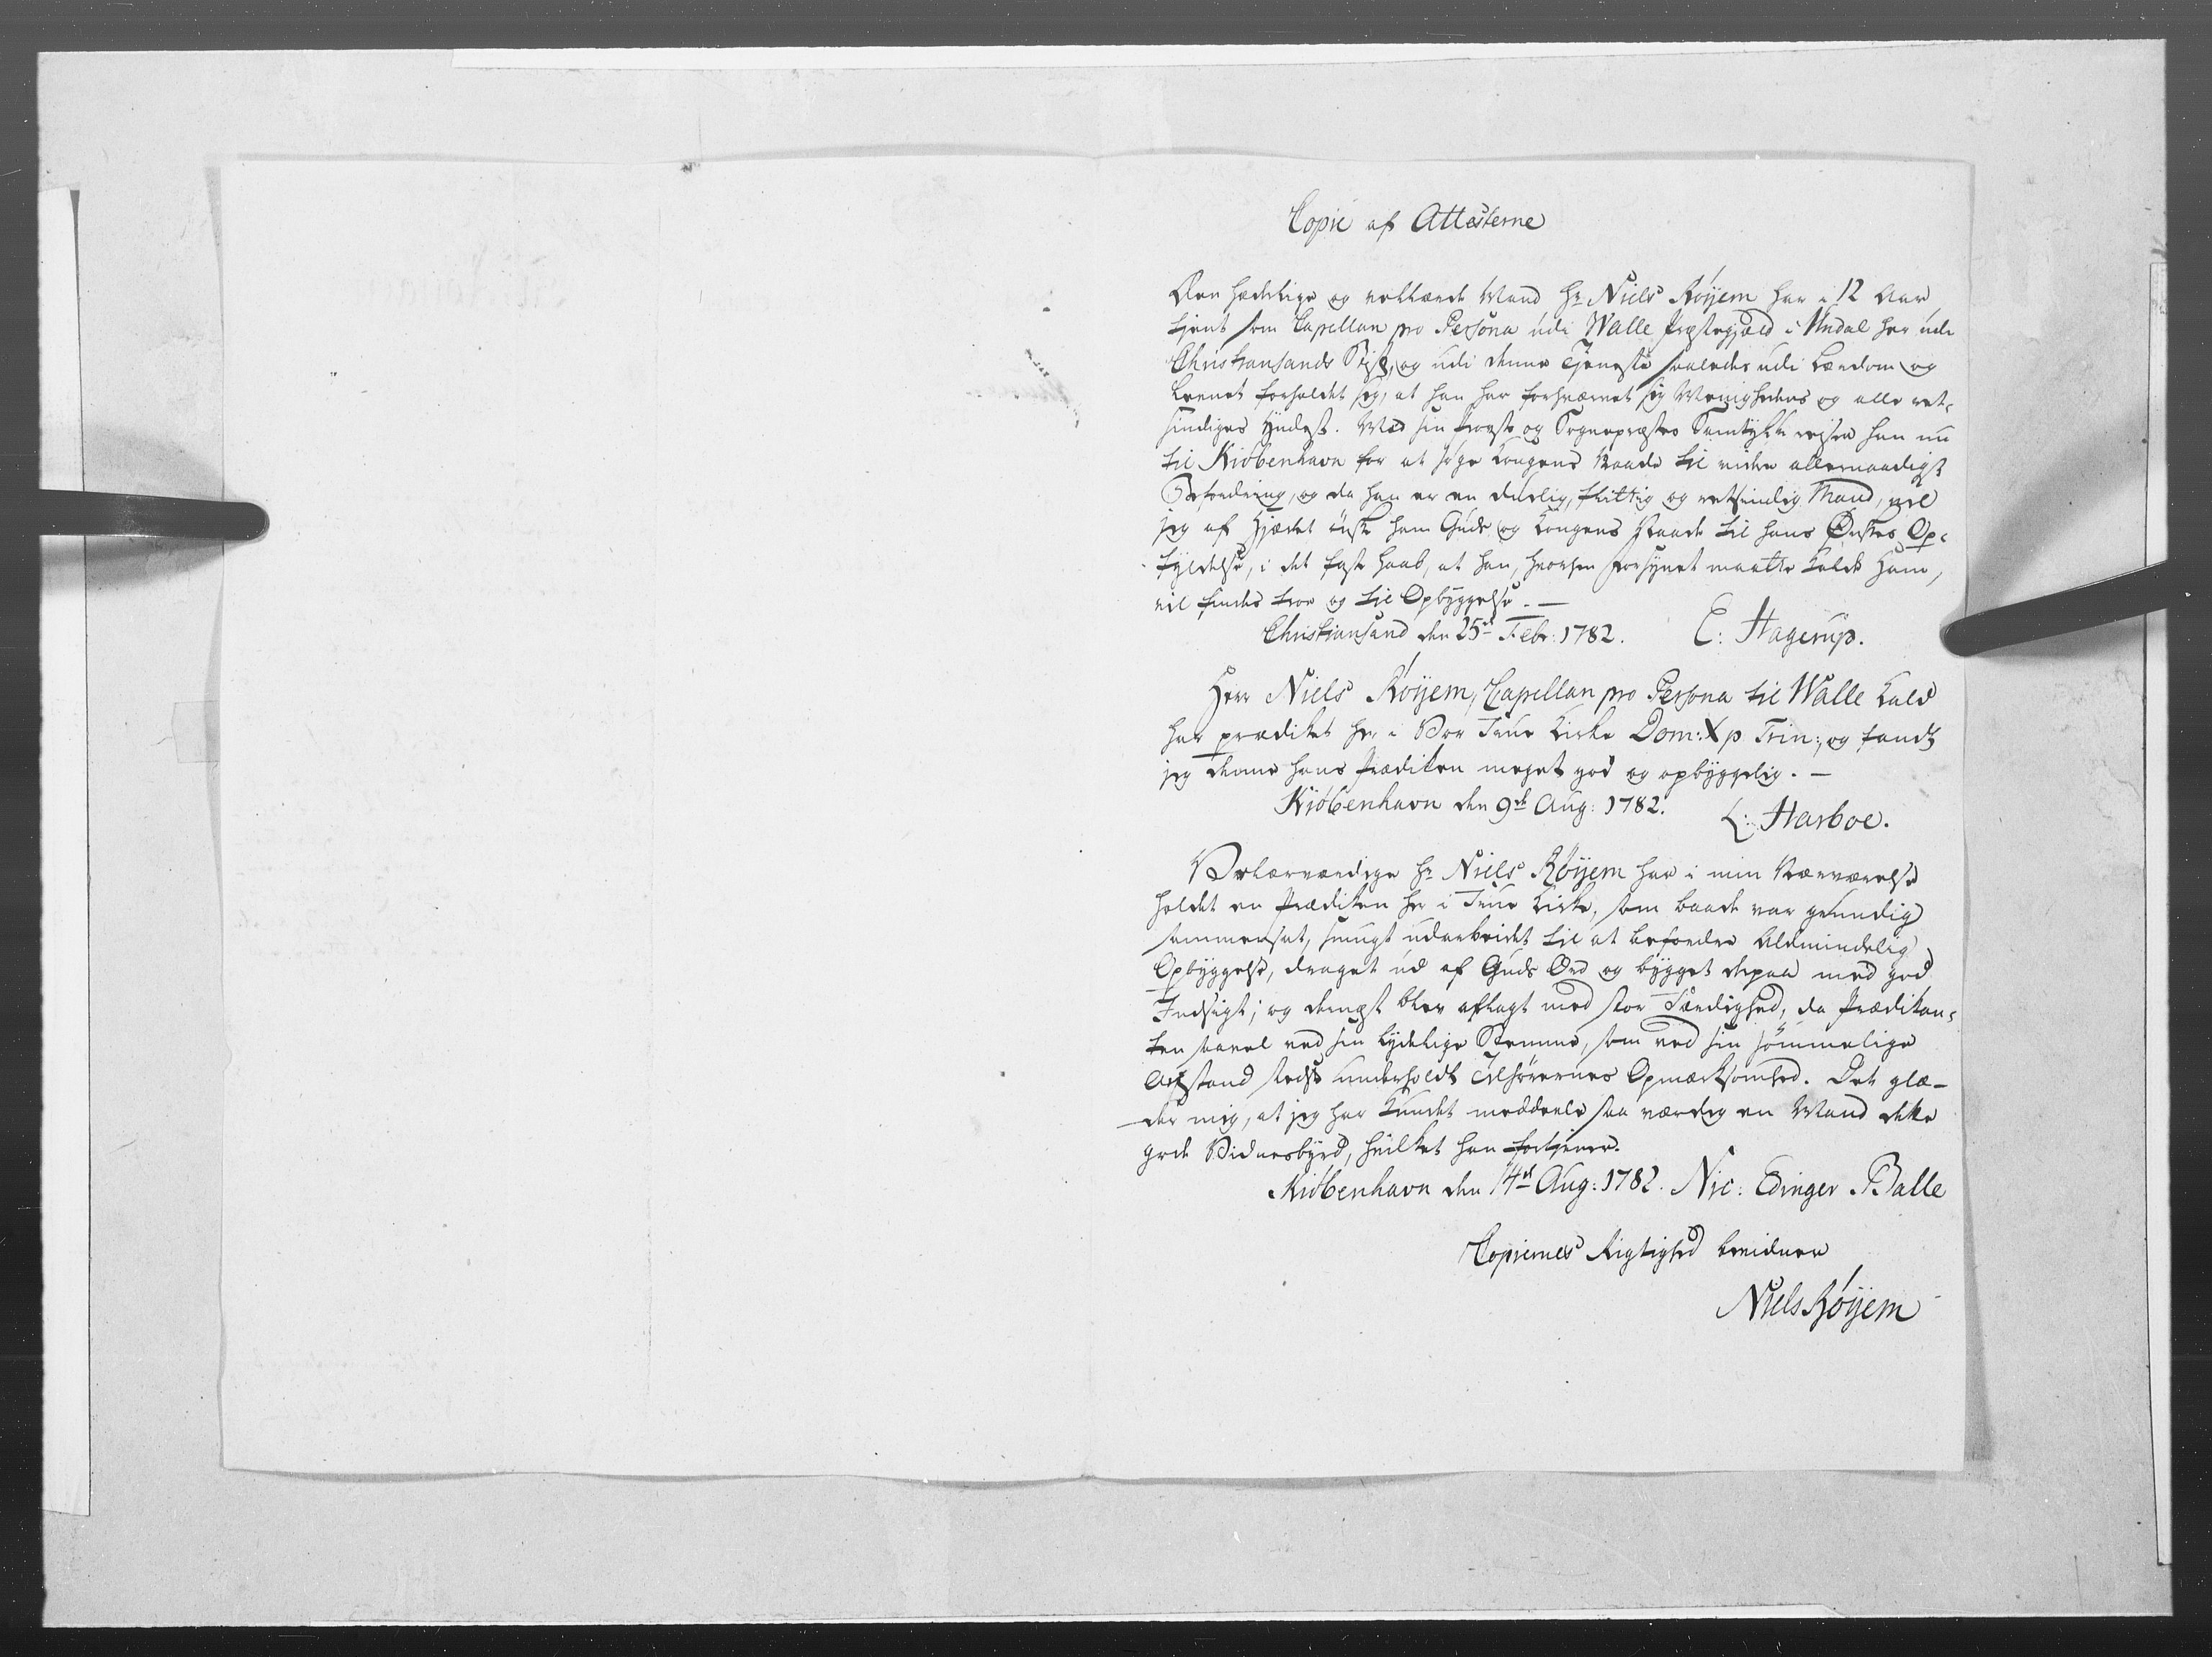 Copie af Attesterne
Den hæderlige og vellærde Mand Hr Niels Röyem har i 12 Aar
tjent som Capellan pro Persona udi Walle Præstegjæld i Undal her udi
Christiansands Stift, og udi denne Tjeneste saaledes udi Lærdom og
Levnet forholdet sig, at han har forhværvet sig Menighedens og alle ret-
sindiges Yndest. Med sin Provst og Sognepræstes Samtykke reiser han nu
til Kiöbenhavn for at söge Kongens Naade til videre allernaadigst
Befordring, og da han er en duelig, flittig og retsindig Mand, vil
jeg af Hjærtet önske ham Guds og Kongens Naade til hans Önskes Op-
fyldelse, i det faste Haab, at han, hvorhen Forsynet maatte kalde ham,
vil findes troe og til Opbyggelse. —
Christiansand den 25de Febr: 1782. E: Hagerup.
Herr Niels Röyem, Capellan pro Persona til Walle Kald
har prædiket her i Vor Frue Kirke Dom: X p Trin:, og fandt
jeg denne hans Prædiken meget god og opbyggelig. —
Kiöbenhavn den 9de Aug: 1782. L: Harboe.
Velærværdige Hr Niels Röyem har i min Nærværelse
holdet en Prædiken her i Frue Kirke, som baade var grundig
sammensat, smugt udarbeidet til at befordre Almindelig
Opbyggelse, draget ud af Guds Ord og bygget derpaa med god
Indsigt; og dernæst blev aflagt med stor Færdighed, da Prædikan-
ten saavel ved sin lydelige Stemme, som ved sin sömmelige
Anstand stedse underholdt Tilhörernes Opmærksomhed. Det glæ-
der mig, at jeg har kundet meddeele saa værdig en Mand dette
gode Vidnesbyrd, hvilket han fortjener.
Kiöbenhavn den 14de Aug: 1782. Nic: Edinger Balle
Copiernes Rigtighed bevidner
Niels Röyem